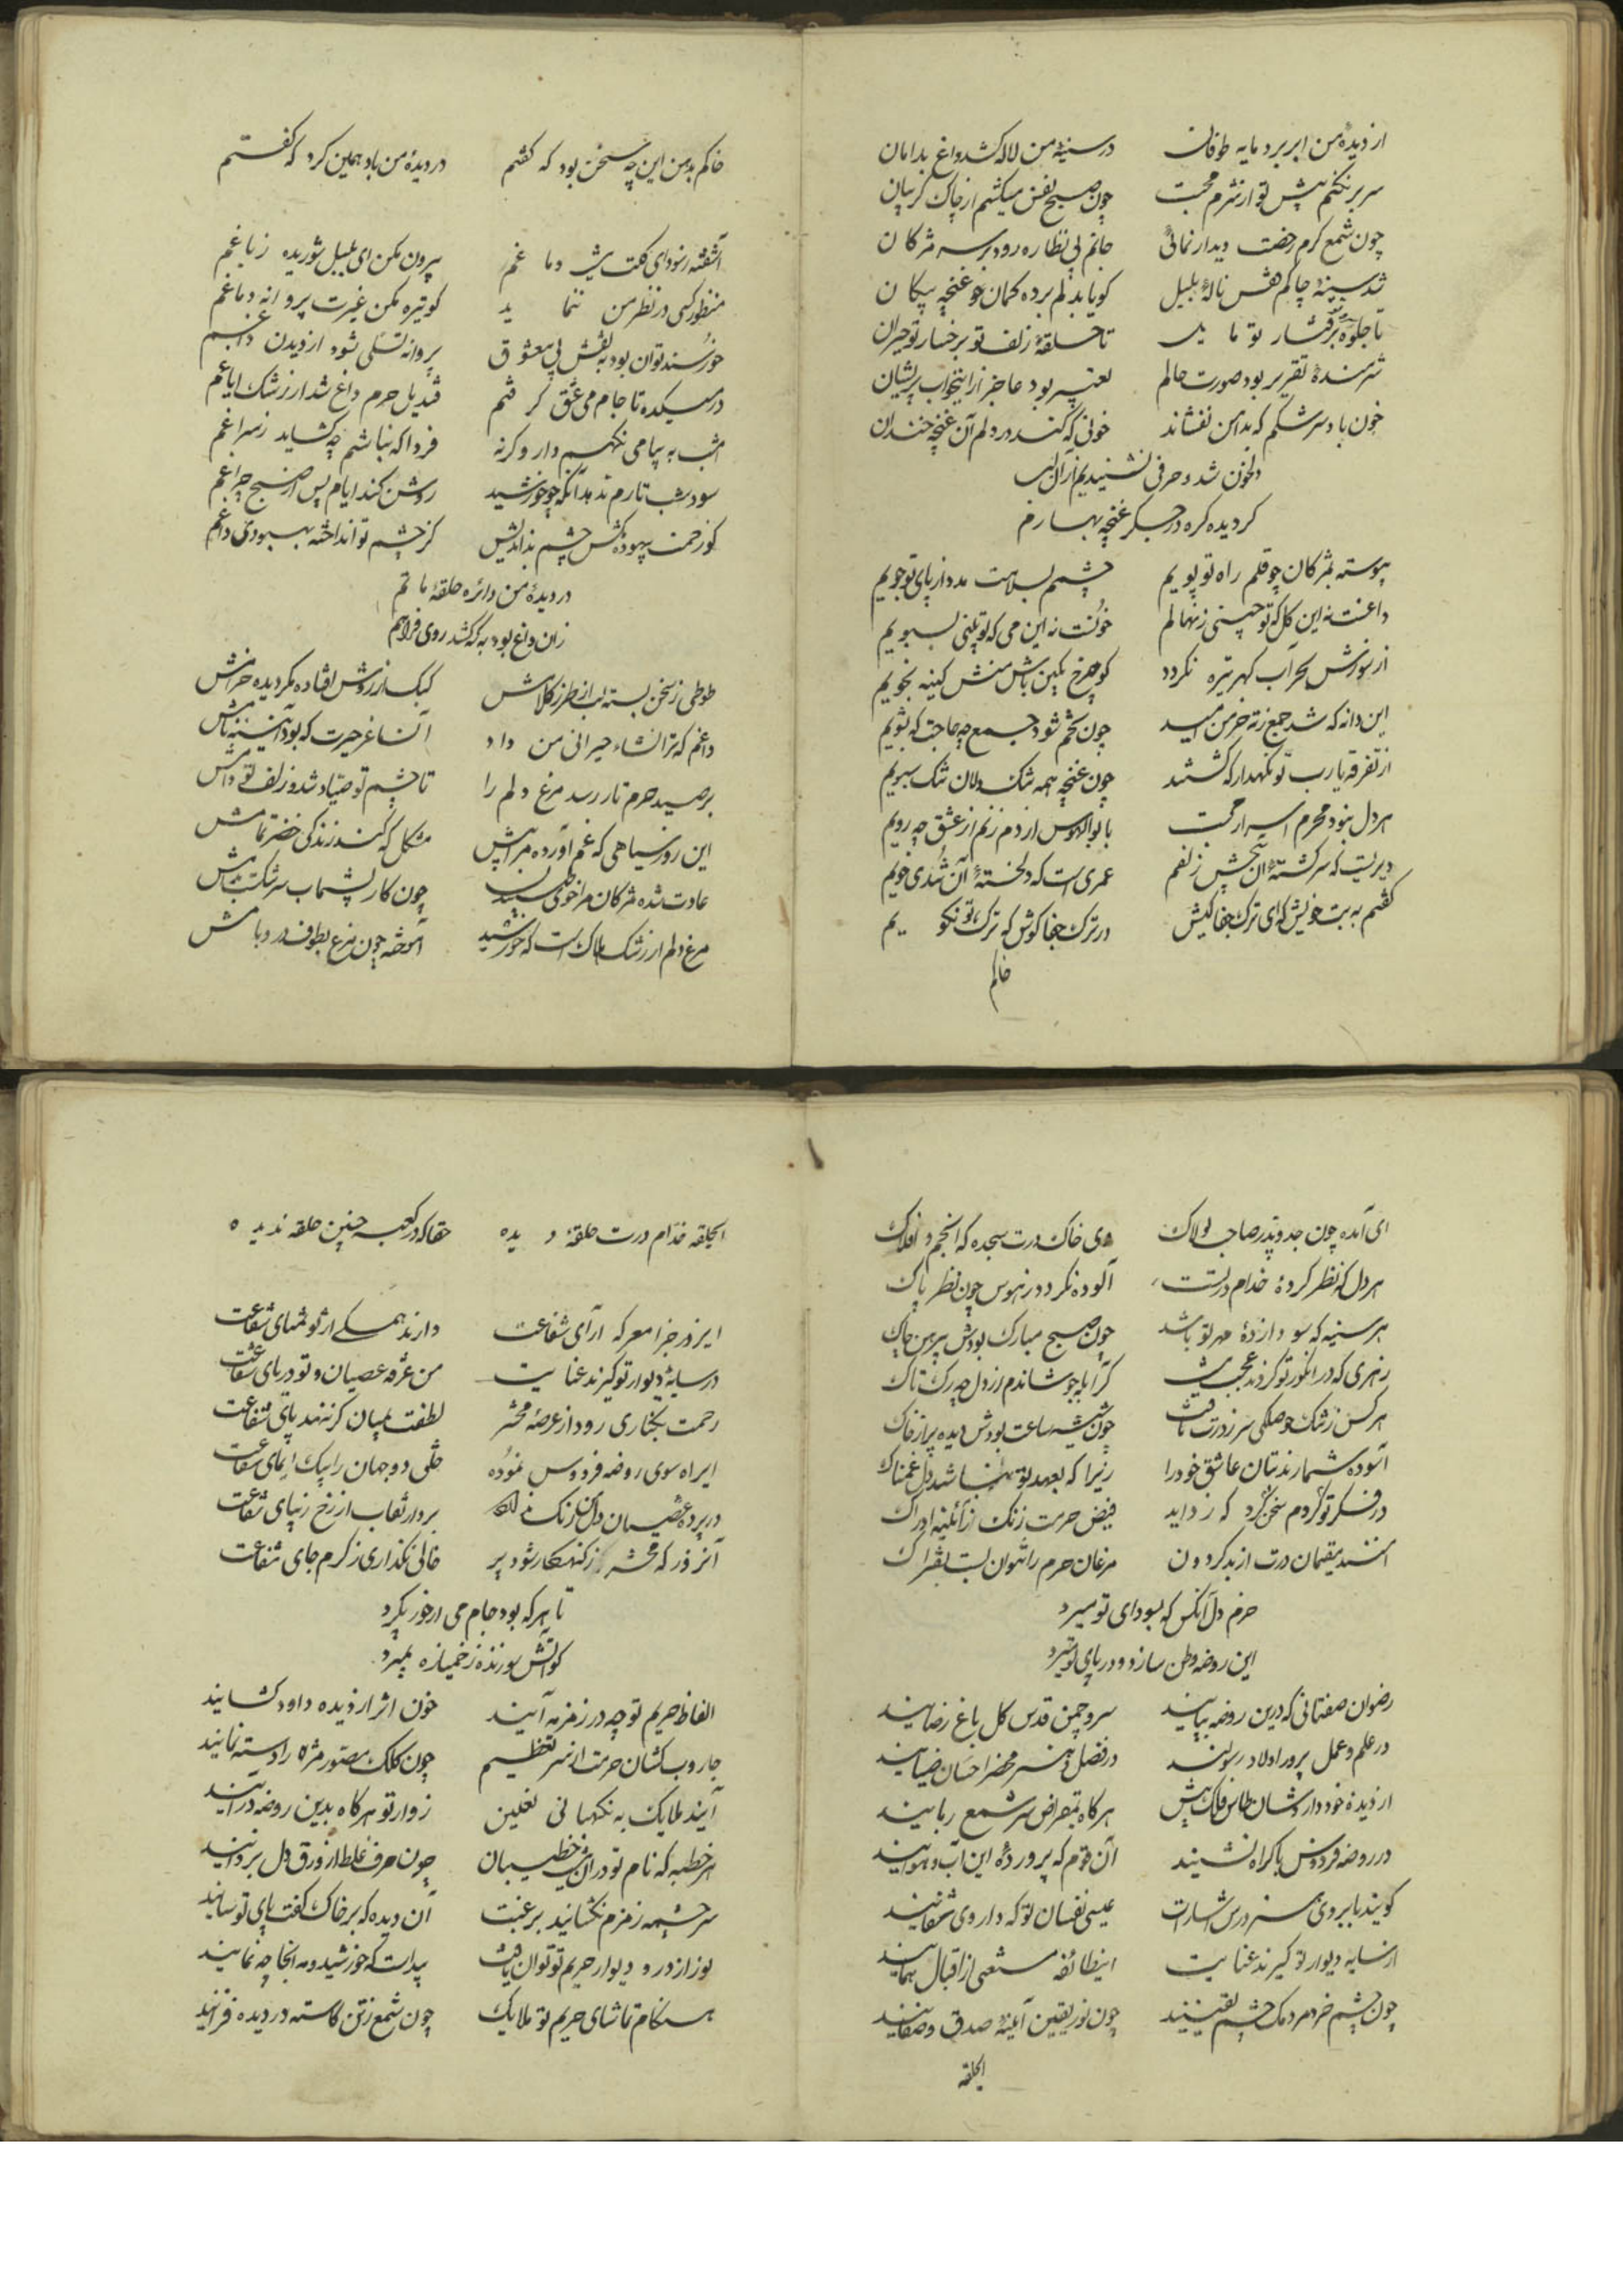 از دیدهٔ من ابر برد مایه طوفان در سینهٔ من لاله کشد داغ بدامان
سر بر نکنم پیش تو از شرم محبت چون صبح نفس میکشم از چاک گریبان
چون شمع گرم رخصت دیدار نمائی جانم پی نظاره رود بر سر مژکان
شد سینهٔ چاکم قفس نالهٔ بلبل کویا بدلم برده کمان غنچه پیکان
تا جلوه رخسار تو تا حلقهٔ زلف تو بر رخسار تو حیران
شرمندهٔ تقریر بود صورت حالم تعبیر بود عاجز ازین خواب پریشان
خون باد سرشکم که بدامن نفشاند خونی که کند در دلم آن غنچه خندان
دلخون شد و حرفی نشنیدیم از آن لب
کردیده کره در جکر غنچه بهارم
پیوسته بمژکان چو قلم راه تو پویم چشمم براهت مدد از پای تو جویم
داغست نه این کل که تو چینی ز نهالم خونست نه این می که تو بینی بسبویم
از سوزش بحر آب کهر تیره نکردد کو چرخ بکین باش منش کینه نجویم
این دانه که شد جمع ز ته خرمن امید چون تخم شود جمع چه حاجت که بشویم
از تفرقه یا رب تو نکهدار که کشتند چون غنچه همه تنک دلان تنک سبویم
هر دل نبود محرم اسرار محبت با بوالهوس ار دم زنم از عشق چه رویم
دیریست که سرکشتهٔ آن چین زلفم عمری است که دلخستهٔ آن تندی خویم
کفتم به بت خویش که ای ترک جفا کیش در ترک جفا کوش که ترک تو نکویم
خاکم
خاکم بدهن این چه سخن بود که کفتم در دیدهٔ من باد همین کرد که رفتم
آشفته ز سودای کلت شد دماغم بیرون مکن ای بلبل شوریده ز باغم
منظور کسی در نظر من ننماید کو تیره مکن غیرت پروانه دماغم
خورسند توان بود به نقش پی معشوق پروانه تسلی شود از دیدن داغم
در میکده تا جام می عشق کرفتم قندیل حرم داغ شد از رشک ایاغم
امشب به پیامی نکهم دار و کرنه فردا که نباشم چه کشاید ز سراغم
سود شب تارم ندهد آنکه چو خورشید روشن کند ایام پس از صبح چراغم
کو زحمت بیهوده مکش چشم بداندیش کز چشم تو انداخته بهبودی داغم
در دیدهٔ من دائره حلقهٔ ماتم
زان داغ بود به که کشد روی فراهم
طوطی ز سخن بسته لب از طرز کلامش کبک از روش افتاده مکر دیده خرامش
داغم که ترا نشاء حیرانی من داد آن ساغر حیرت که بود آینه نامش
بر صید حرم تا رسد مرغ دلم را تا چشم تو صیاد شد و زلف تو دامش
این روز سیاهی که غم آورده مرا پیش مشکل که کند زندکی خضر تمامش
عادت شده مژکان مرا چون کار سرشکست
مرغ دلم از رشک هلاک است که خورشید آموخته چون مرغ بطوف در و بامش
ای آمده چون جد و پدر صاحب لولاک وی خاک درت سجده که انجم و افلاک
هر دل که نظر کردهٔ خدام درتست آلوده نکردد ز هوس چون نظر پاک
هر سینه که سودا زدهٔ مهر تو باشد چون صبح مبارک بودش پیرهن چاک
زهری که در انکور تو کردند عجب نیست کر آبله جوشاندم از دل چو رک تاک
هر کس ز تنک حوصلکی سر ز درت تافت چون شیشه ساعت بودش دیده پر از خاک
آسوده شمارند بتان عاشق خود را زیرا که بعهد تو نباشد دل غمناک
در فکر تو کردم سخنی کرد که زداید فیض حرمت زنک از آئینه ادراک
مقیمان درت از بد کردون مرغان حرم را نتوان بست بفتراک
خرم دل آنکس که بسودای تو میرد
این روضه وطن سازد و در پای تو میرد
رضوان صفتانی که درین روضه بپایند سرو چمن قدس کل باغ رضایند
در علم و عمل پرور اولاد رسولند در فضل و هنر مخزن احسان ضیایند
از دیدهٔ خود دار وشان طاس فلک پیش هرکاه بمقراض سر شمع ربایند
در روضه فردوس باکراه نشینند آن قوم که پروردهٔ این آب و هوایند
کویند بابروی هنر درس اشارات عیسی نفسان تو که داروی شفایند
از سایه دیوار تو کیرند عنایت این طائفه مستغنی از اقبال همایند
چون چشم خرد مردمک چشم یقینند چون نور یقین آینهٔ صدق و صفایند
الحلقه
الحلقه خدام درت حلقهٔ دیده حقا که در کعبه چنین حلقه ندیده
ای روز جزا معرکه آرای شفاعت دارند همکی از تو تمنای شفاعت
در سایهٔ دیوار تو کیرند عنایت من غرقه عصیان و تو دریای شفاعت
رحمت بکناری رود از عرصهٔ محشر لطفت بمیان کر ننهد پای شفاعت
ای راه سوی روضه فردوس نموده خلق دو جهان را بیک ایمای شفاعت
در پرده عصیان بردار نقاب از رخ زیبای شفاعت
آنروز که محشر ز کنهکار شود پر خالی نکذاری ز کرم جای شفاعت
تا بهره که بود جام می از خور بکیرد
کو آتش سوزنده ز خمیازه بمیرد
الفاظ حریم تو چه در زمزمه آیند خون اثر از دیده داود کشایند
جاروب کشان حرمت از سر تعظیم چون کلک مصور مژه را دسته نمایند
آیند ملایک به نکهبانی نعلین زوار تو هرکاه بدین روضه درآیند
هر خطبه که نام تو در آن نیست خطیبان چون حرف غلط از ورق دل بزدایند
سرچشمه زمزم نکشایند برغبت آن دیده که بر خاک کف پای تو سایند
نور از در و دیوار حریم تو توان یافت پیداست که خورشید و مه آنجا چه نمایند
هنکام تماشای حریم تو ملایک چون شمع ز تن کاسته در دیده فزایند